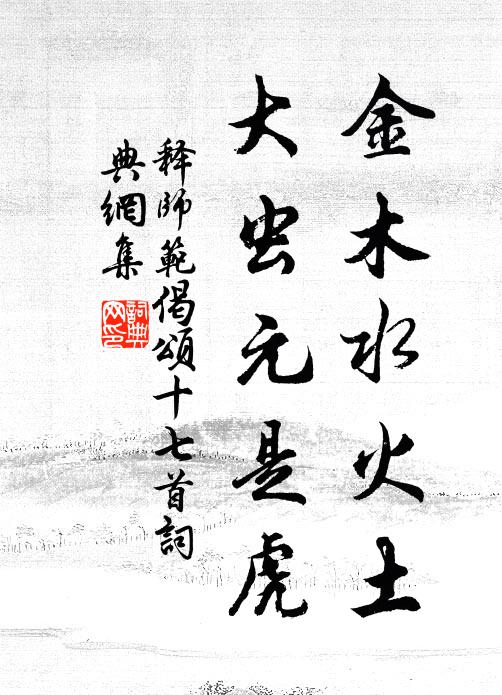 金木水火土
大虫元是虎
释師範偈頌十七首詞
典網集
詞典網印